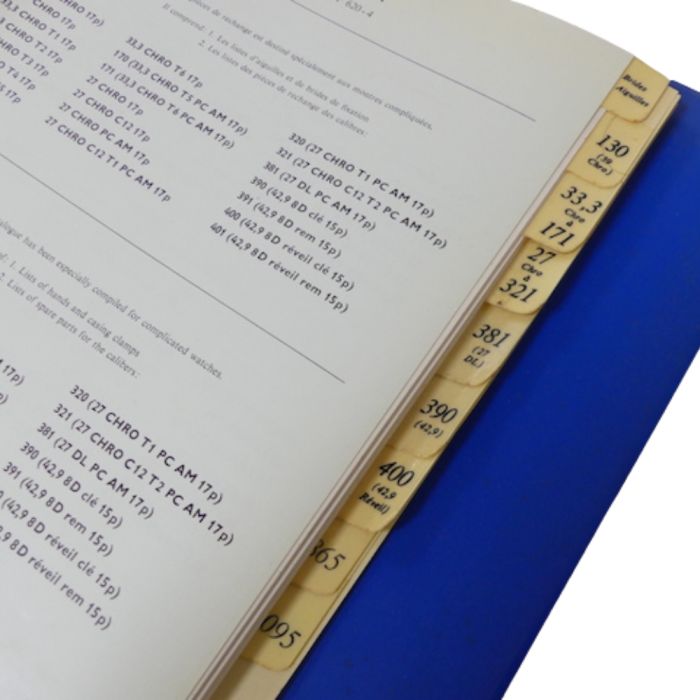 620-4
pièces de rechange est destiné spécialement aux montres compliquées.
Il comprend: 1. Les listes d'aiguilles et de brides de fixation
2. Les listes des pièces de rechange des calibres:
CHRO 17p)
33,3 CHRO T1 17p
CHRO T2 17p
CHRO T3 17p
T4 17p
17p
33,3 CHRO T6 17p
170 (33,3 CHRO T5 PC AM 17p)
171 (33,3 CHRO T6 PC AM 17p)
27 CHRO 17p
27 CHRO C12 17p
27 CHRO PC AM 17p
27 CHRO C12 T1 PC AM 17p
320 (27 CHRO T1 PC AM 17p)
321 (27 CHRO C12 T2 PC AM 17p)
381 (27 DL PC AM 17p)
390 (42,9 8D clé 15p)
391 (42,9 8D rem 15p)
400 (42,9 8D réveil clé 15p)
401 (42,9 8D réveil rem 15p)
alogue has been especially compiled for complicated watches.
1. Lists of hands and casing clamps
2. Lists of spare parts for the calibers:
17p)
320 (27 CHRO T1 PC AM 17p)
321 (27 CHRO C12 T2 PC AM 17p)
381 (27 DL PC AM 17p)
390 (42,9 8D clé 15p)
391 (42,9 8D rem 15p)
(42,9 8D réveil clé 15p)
8D réveil rem 15p)
Brides
Aiguilles
130
(39
Chro)
33,3
Chro
à
171
27
Chro
à
321
381
(27
DL)
390
(42,9)
400
(42,9
Réveil)
865
095